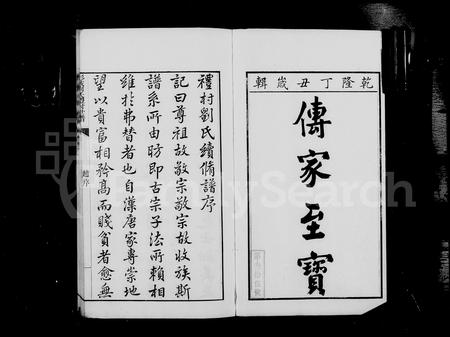 乾隆丁丑歲輯
傳家至寶
禮村劉氏續脩譜序
記曰尊祖故敬宗敬宗故收族斯
譜系所由昉即古宗子法所賴相
維於弗替者也自漢唐家專崇地
望以貴富相矜高而賤貧者愈無
趙序
FamilySearch